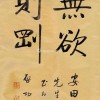 無欲
則剛
安田
先生
啟功